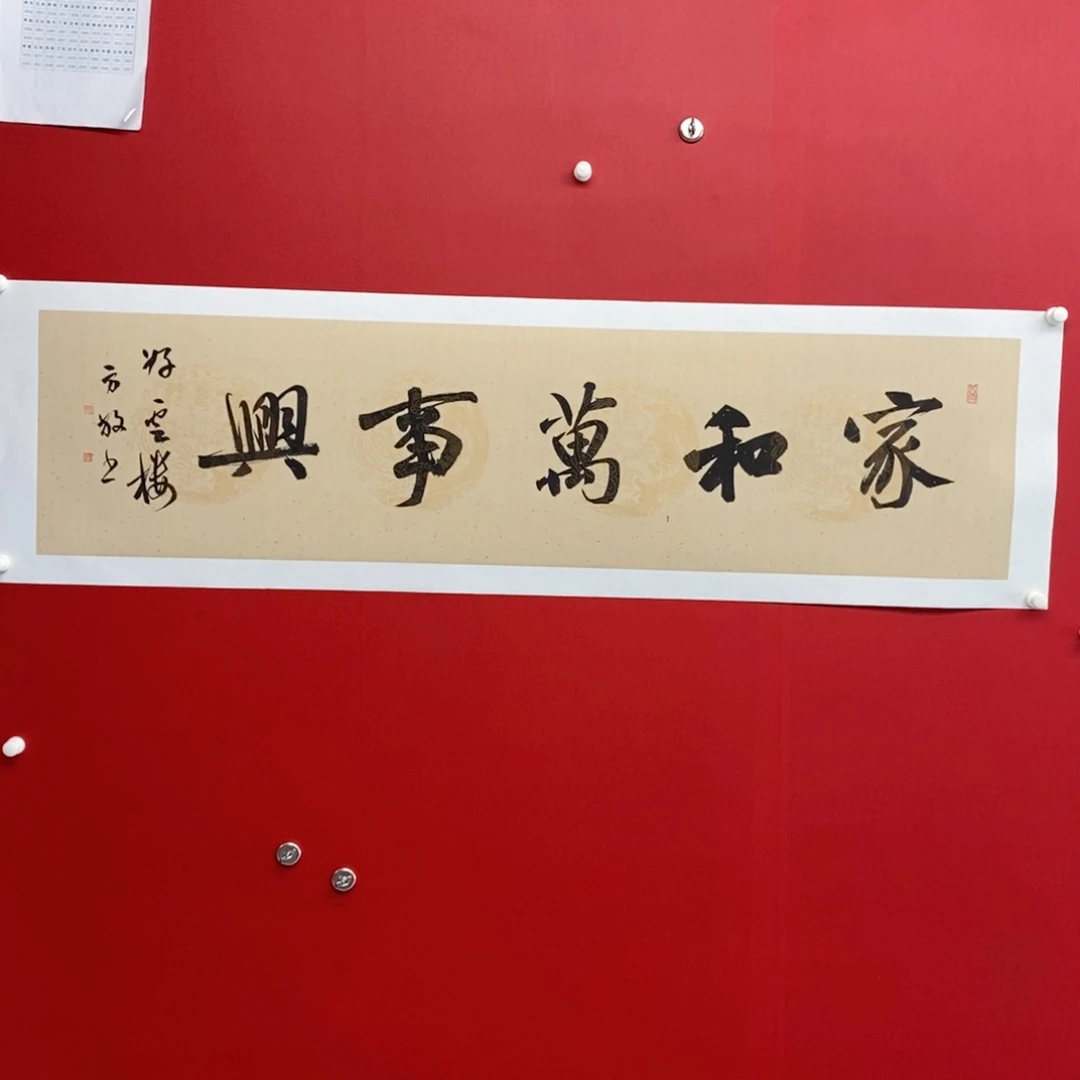 家和萬事興
好雲楼
方放书